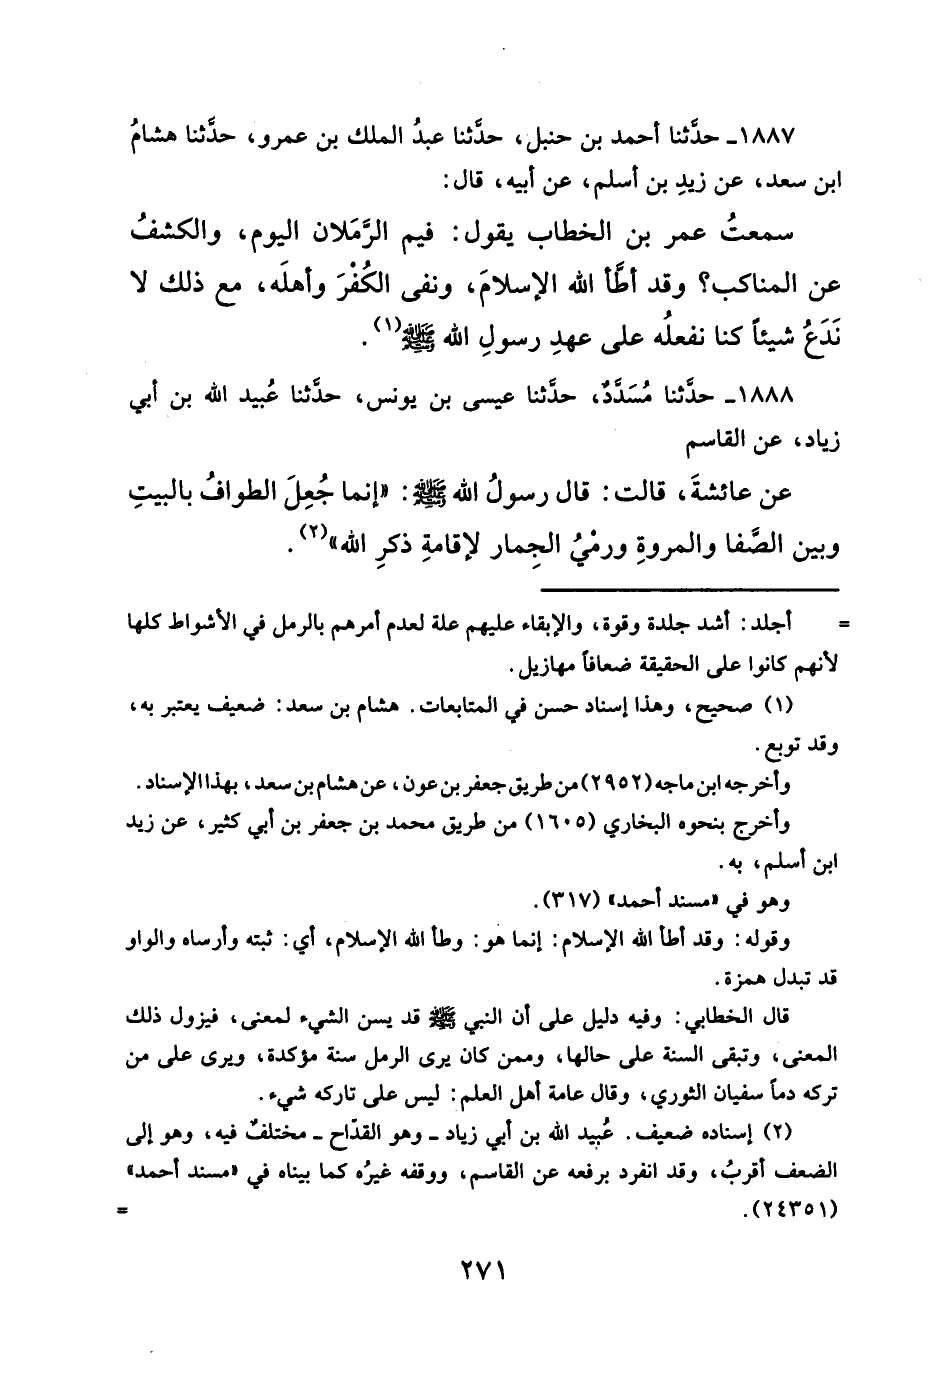 ١٨٨٧ـ حدَّثنا أحمد بن حنبل، حدَّثنا عبدُ الملك بن عمرو، حدَّثنا هشامُ
ابن سعد، عن زيدِ بن أسلم، عن أبيه، قال:
سمعتُ عمر بن الخطاب يقول: فيم الرَّمَلان اليوم، والكشفُ
عن المناكب؟ وقد أطَّأ الله الإسلامَ، ونفى الكُفْرَ وأهلَه، مع ذلك لا
نَدَعُ شيئاً كنا نفعلُه على عهدِ رسولِ الله ﷺ(١).
١٨٨٨ـ حدَّثنا مُسَدَّدٌ، حدَّثنا عيسى بن يونس، حدَّثنا عُبيد الله بن أبي
زياد، عن القاسم
عن عائشةَ، قالت: قال رسولُ الله ﷺ: «إنما جُعِلَ الطوافُ بالبيتِ
وبين الصَّفا والمروةِ ورمْيُ الجِمار لإقامةِ ذكرِ الله»(٢).
= أجلد: أشد جلدة وقوة، والإبقاء عليهم علة لعدم أمرهم بالرمل في الأشواط كلها
لأنهم كانوا على الحقيقة ضعافاً مهازيل.
(١) صحيح، وهذا إسناد حسن في المتابعات. هشام بن سعد: ضعيف يعتبر به،
وقد توبع.
وأخرجه ابن ماجه (٢٩٥٢) من طريق جعفر بن عون، عن هشام بن سعد، بهذا الإسناد.
وأخرج بنحوه البخاري (١٦٠٥) من طريق محمد بن جعفر بن أبي كثير، عن زيد
ابن أسلم، به.
وهو في «مسند أحمد» (٣١٧).
وقوله: وقد أطأ الله الإسلام: إنما هو: وطأ الله الإسلام، أي: ثبته وأرساه والواو
قد تبدل همزة.
قال الخطابي: وفيه دليل على أن النبي ﷺ قد يسن الشيء لمعنى، فيزول ذلك
المعنى، وتبقى السنة على حالها، وممن كان يرى الرمل سنة مؤكدة، ويرى على من
تركه دماً سفيان الثوري، وقال عامة أهل العلم: ليس على تاركه شيء.
(٢) إسناده ضعيف. عُبيد الله بن أبي زياد ـ وهو القدّاح ـ مختلفٌ فيه، وهو إلى
الضعف أقربُ، وقد انفرد برفعه عن القاسم، ووقفه غيرُه كما بيناه في «مسند أحمد»
(٢٤٣٥١). =
٢٧١